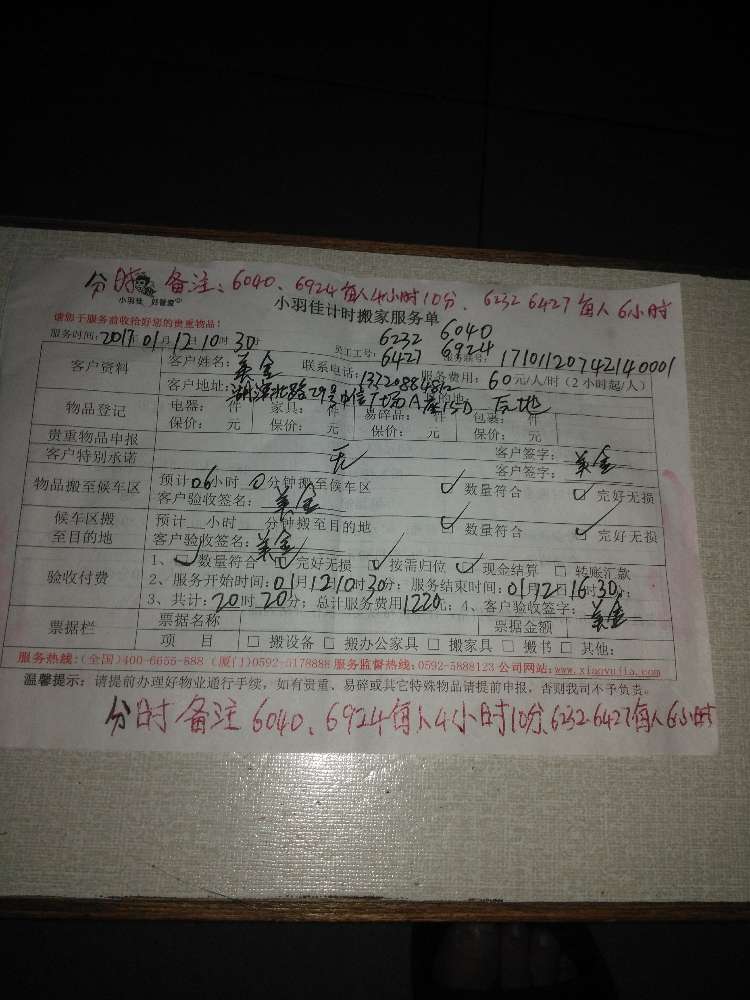 分时 备注：6040、6924每人4小时10分、6232 6427每人6小时
小羽佳 好管家
小羽佳计时搬家服务单
请您于服务前收拾好您的贵重物品！
服务时间：2017年01月12日10时30分 员工工号：6232 6040 6427 6924 服务编号：17101120742140001
客户资料 客户姓名： 联系电话：13720884812 服务费用：60元/人/时（2小时起/人）
客户地址：湖滨北路29号中信广场A座15D 目的地：
物品登记 电器： 件 家具： 件 易碎品： 件 包裹： 件
保价： 元 保价： 元 保价： 元 保价： 元
贵重物品申报 客户签字：
客户特别承诺 无 客户签字：
物品搬至候车区 预计06小时0分钟搬至候车区 ☑ 数量符合 ☑ 完好无损
客户验收签名：
候车区搬至目的地 预计 小时 分钟搬至目的地 ☑ 数量符合 ☑ 完好无损
客户验收签名：
验收付费 1、☑ 数量符合 ☑ 完好无损 ☑ 按需归位 ☑ 现金结算 □ 转账汇款
2、服务开始时间：01月12日10时30分；服务结束时间：01月12日16时30分；
3、共计：20时20分；总计服务费用1220元；4、客户验收签字：
票据栏 票据名称 票据金额
项 目 □ 搬设备 □ 搬办公家具 □ 搬家具 □ 搬书 □ 其他：
服务热线：(全国)400-6655-888 (厦门)0592-5178888 服务监督热线：0592-5888123 公司网站：www.xiaoyujia.com
温馨提示：请提前办理好物业通行手续，如有贵重、易碎或其它特殊物品请提前申报，否则我司不予负责。
分时 备注 6040、6924每人4小时10分、6232 6427每人6小时